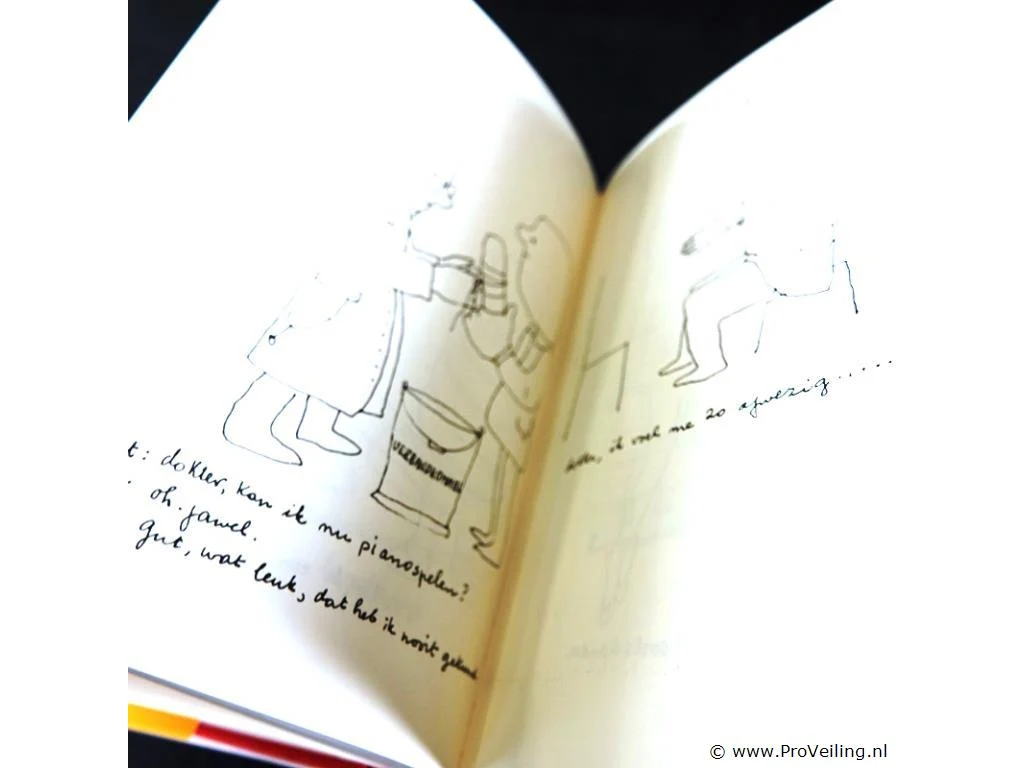 t: dokter, kan ik nu pianospelen?
. oh. jawel.
gut, wat leuk, dat heb ik nooit gekund
dokter, ik voel me zo afwezig.....
© www.ProVeiling.nl